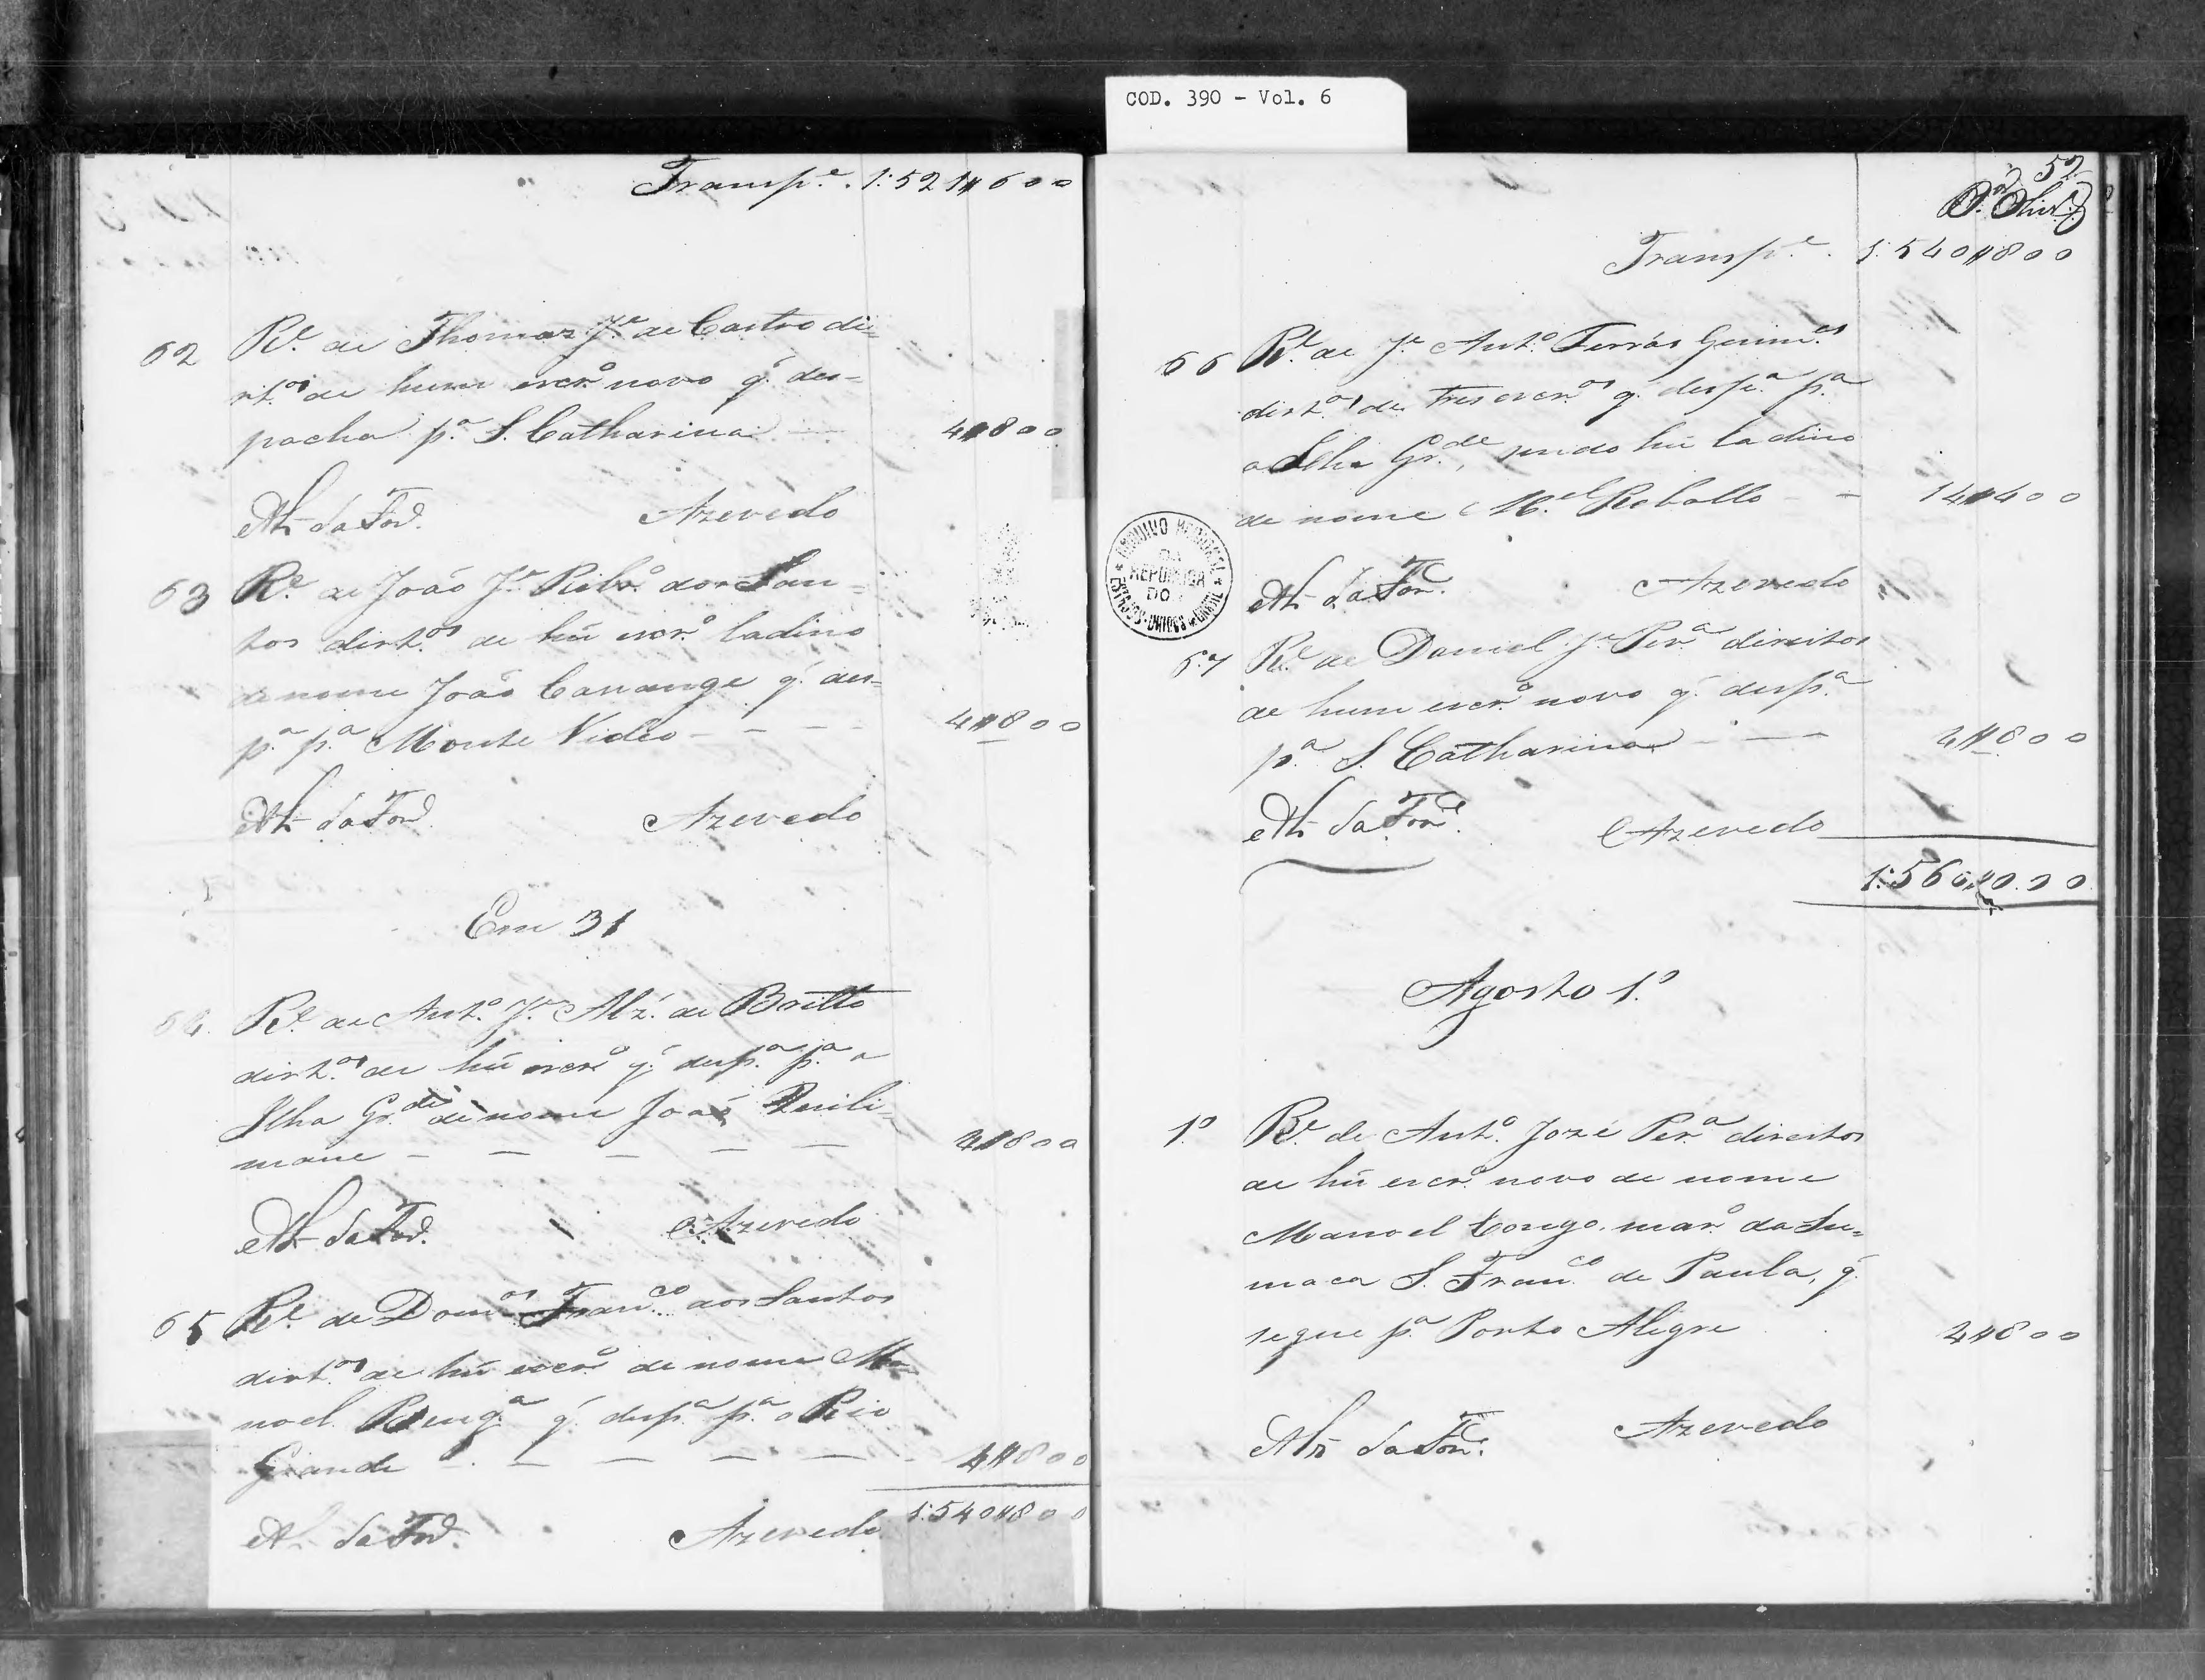 COD. 390 - Vol. 6
Transp.e 1:521#600
62 R.e de Thomaz J.e de Castro di=
rt.os de hum escr.o novo q. des=
pacha p.a S. Catharina 4#800
Azevedo
63 R.e de João J.e Ribr.o dos San=
tos dirt.os de hũ escr.o ladino
de nome João Canange q. des=
p.a p.a Monte Video - - - 4#800
Azevedo
Em 31
64 R.e de Ant.o J.e Alz. de Britto
dirt.os de hũ escr.o q. desp.a p.a a
Ilha Gr.de de nome João Quili=
mane - - - - - 4#800
Azevedo
65 R.e de Dom.os Fran.co dos Santos
dirt.os de hũ escr.o de nome Ma=
noel Beng.a q. desp.a p.a o Rio
Grande - - - - - 4#800
1:540#800
Azevedo
52
Transp.e 1:540#800
66 R.e de J.e Ant.o Ferrás Guim.es
dirt.os de tres escr.os q. desp.a p.a
a Ilha Gr.de, sendo hũ ladino
de nome M.el Rebollo - - 14#400
ARQUIVO NACIONAL
DA
REPUBLICA
DOS
ESTADOS-UNIDOS DO BRAZIL
Azevedo
67 R.e de Daniel J.e Per.a direitos
de hum escr.o novo q. desp.a
p.a S. Catharina - - 4#800
Azevedo
1:560#000
Agosto 1.o
1.o R.e de Ant.o Jozé Per.a direitos
de hũ escr.o novo de nome
Manoel Congo mar.o da Su=
maca S. Fran.co de Paula, q.
segue p.a Porto Alegre 4#800
Azevedo